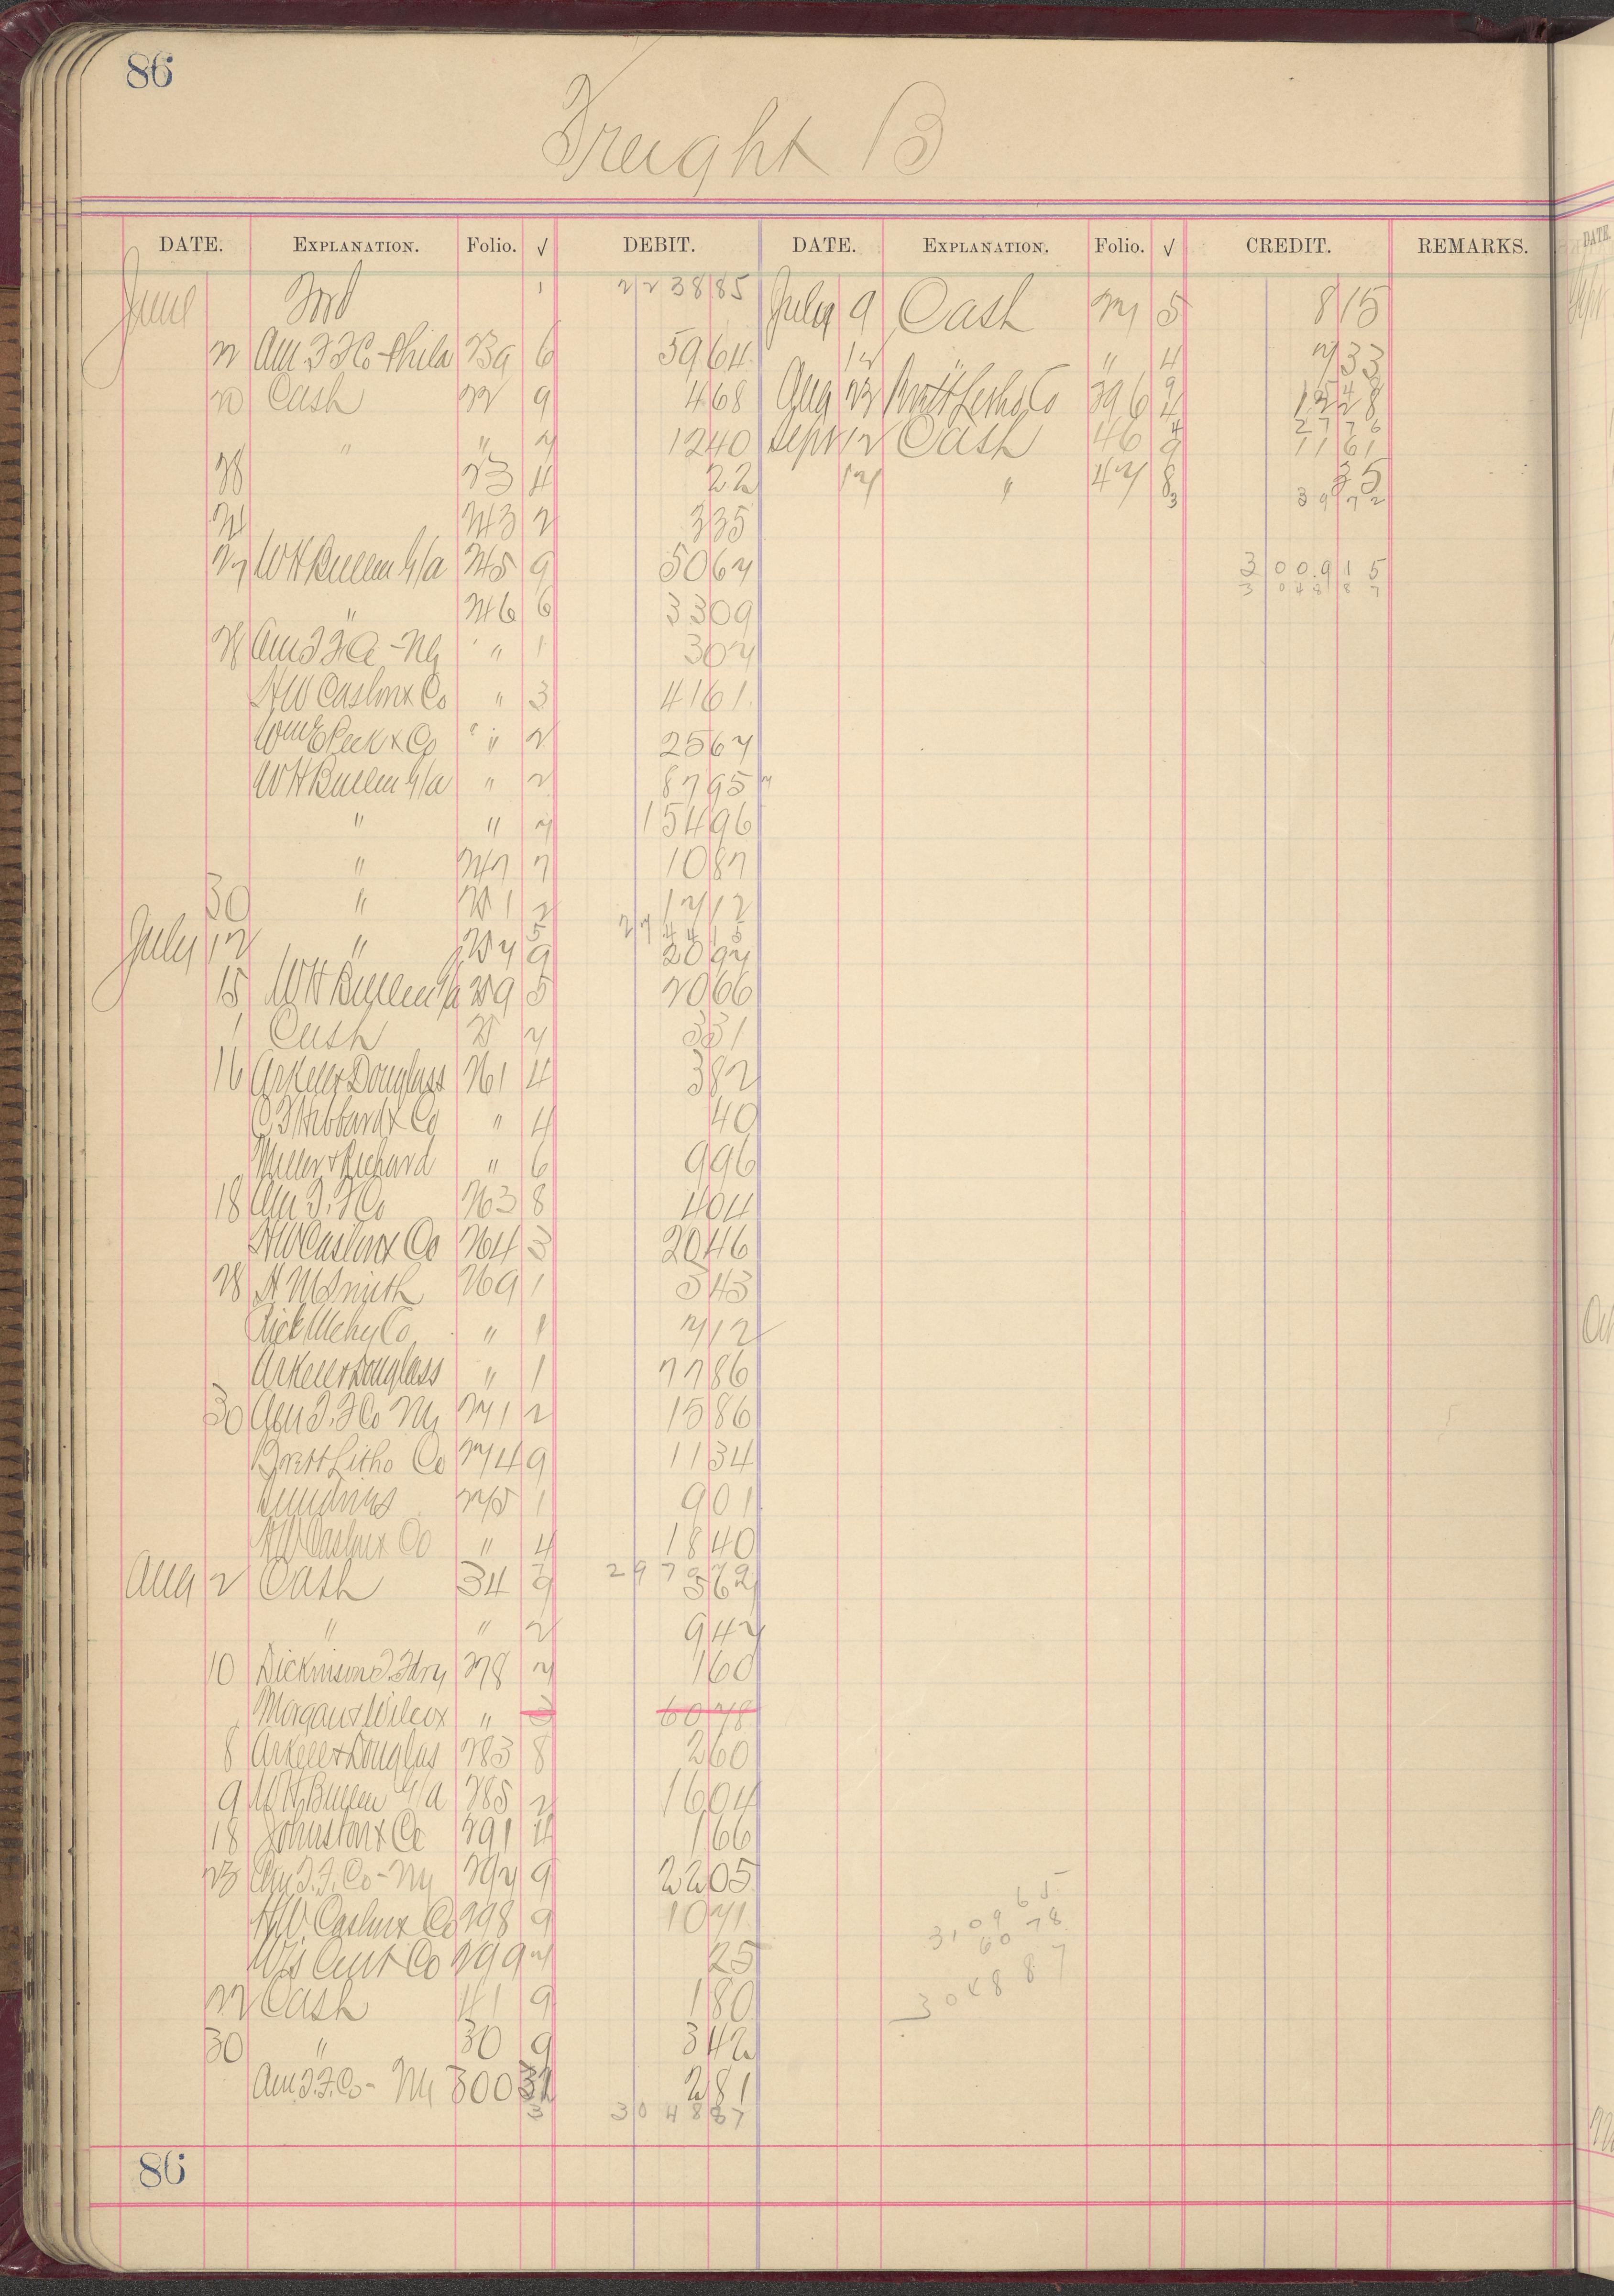 86
Freight B
DATE. EXPLANATION. Folio. √ DEBIT. DATE. EXPLANATION. Folio. √ CREDIT. REMARKS.
June Ford 1 2238 85 July 9 Cash 27 5 8 15
22 Am T F Co-Phila 239 6 59 64 12 " " 4 7 33
20 Cash 22 9 4 68 Aug 23 Brett Litho Co 296 12 28
" " 7 12 40 Sept 12 Cash 46 11 61
28 23 4 22 17 " 47 8 35
24 243 2 3 35 39 72
27 W H Bullen G/a 245 9 50 67 3 0 0.9 1 5
" 246 6 33 09 3 0 4 8 8 7
28 Am T F Co-Ny " 1 3 07
H W Caslon & Co " 3 41 61
Wm E Peck & Co " 2 25 67
W H Bullen G/a " 2 87 95
" " 7 154 96
" 247 7 10 87
30 " 251 2 17 12
2744 15
July 12 " 257 9 20 97
15 W H Bullen G/a 259 5 20 66
1 Cash 25 7 3 31
16 Arkell & Douglass 261 4 3 82
C F Hibbard & Co " 4 40
Miller & Richard " 6 9 96
18 Am T. F Co 263 8 4 04
H W Caslon & Co 264 3 20 46
28 H M Smith 269 1 5 43
Rich Mchy Co. " 1 7 12
Arkell & Douglass " 1 77 86
30 Am T. F Co Ny 271 2 15 86
Brett Litho Co 274 9 11 34
Sundries 275 1 9 01
H W Caslon & Co " 4 18 40
Aug 2 Cash 34 9 5 62
" " 2 9 47
10 Dickinson T. Fdry 278 7 1 60
Morgan & Wilcox " 60 78
8 Arkell & Douglas 283 8 2 60
9 W H Bullen G/a 285 2 16 04
18 Johnston & Co 291 4 1 66
23 Am T. F. Co-Ny 297 9 22 05
H.W. Caslon & Co 298 9 10 71
3,09 6 5
60 78
W's Cent Co 299 7 25
304 8 8 7
22 Cash 41 9 1 80
30 " 30 9 3 42
Am T. F. Co- Ny 300 2 81
3 3048 87
86